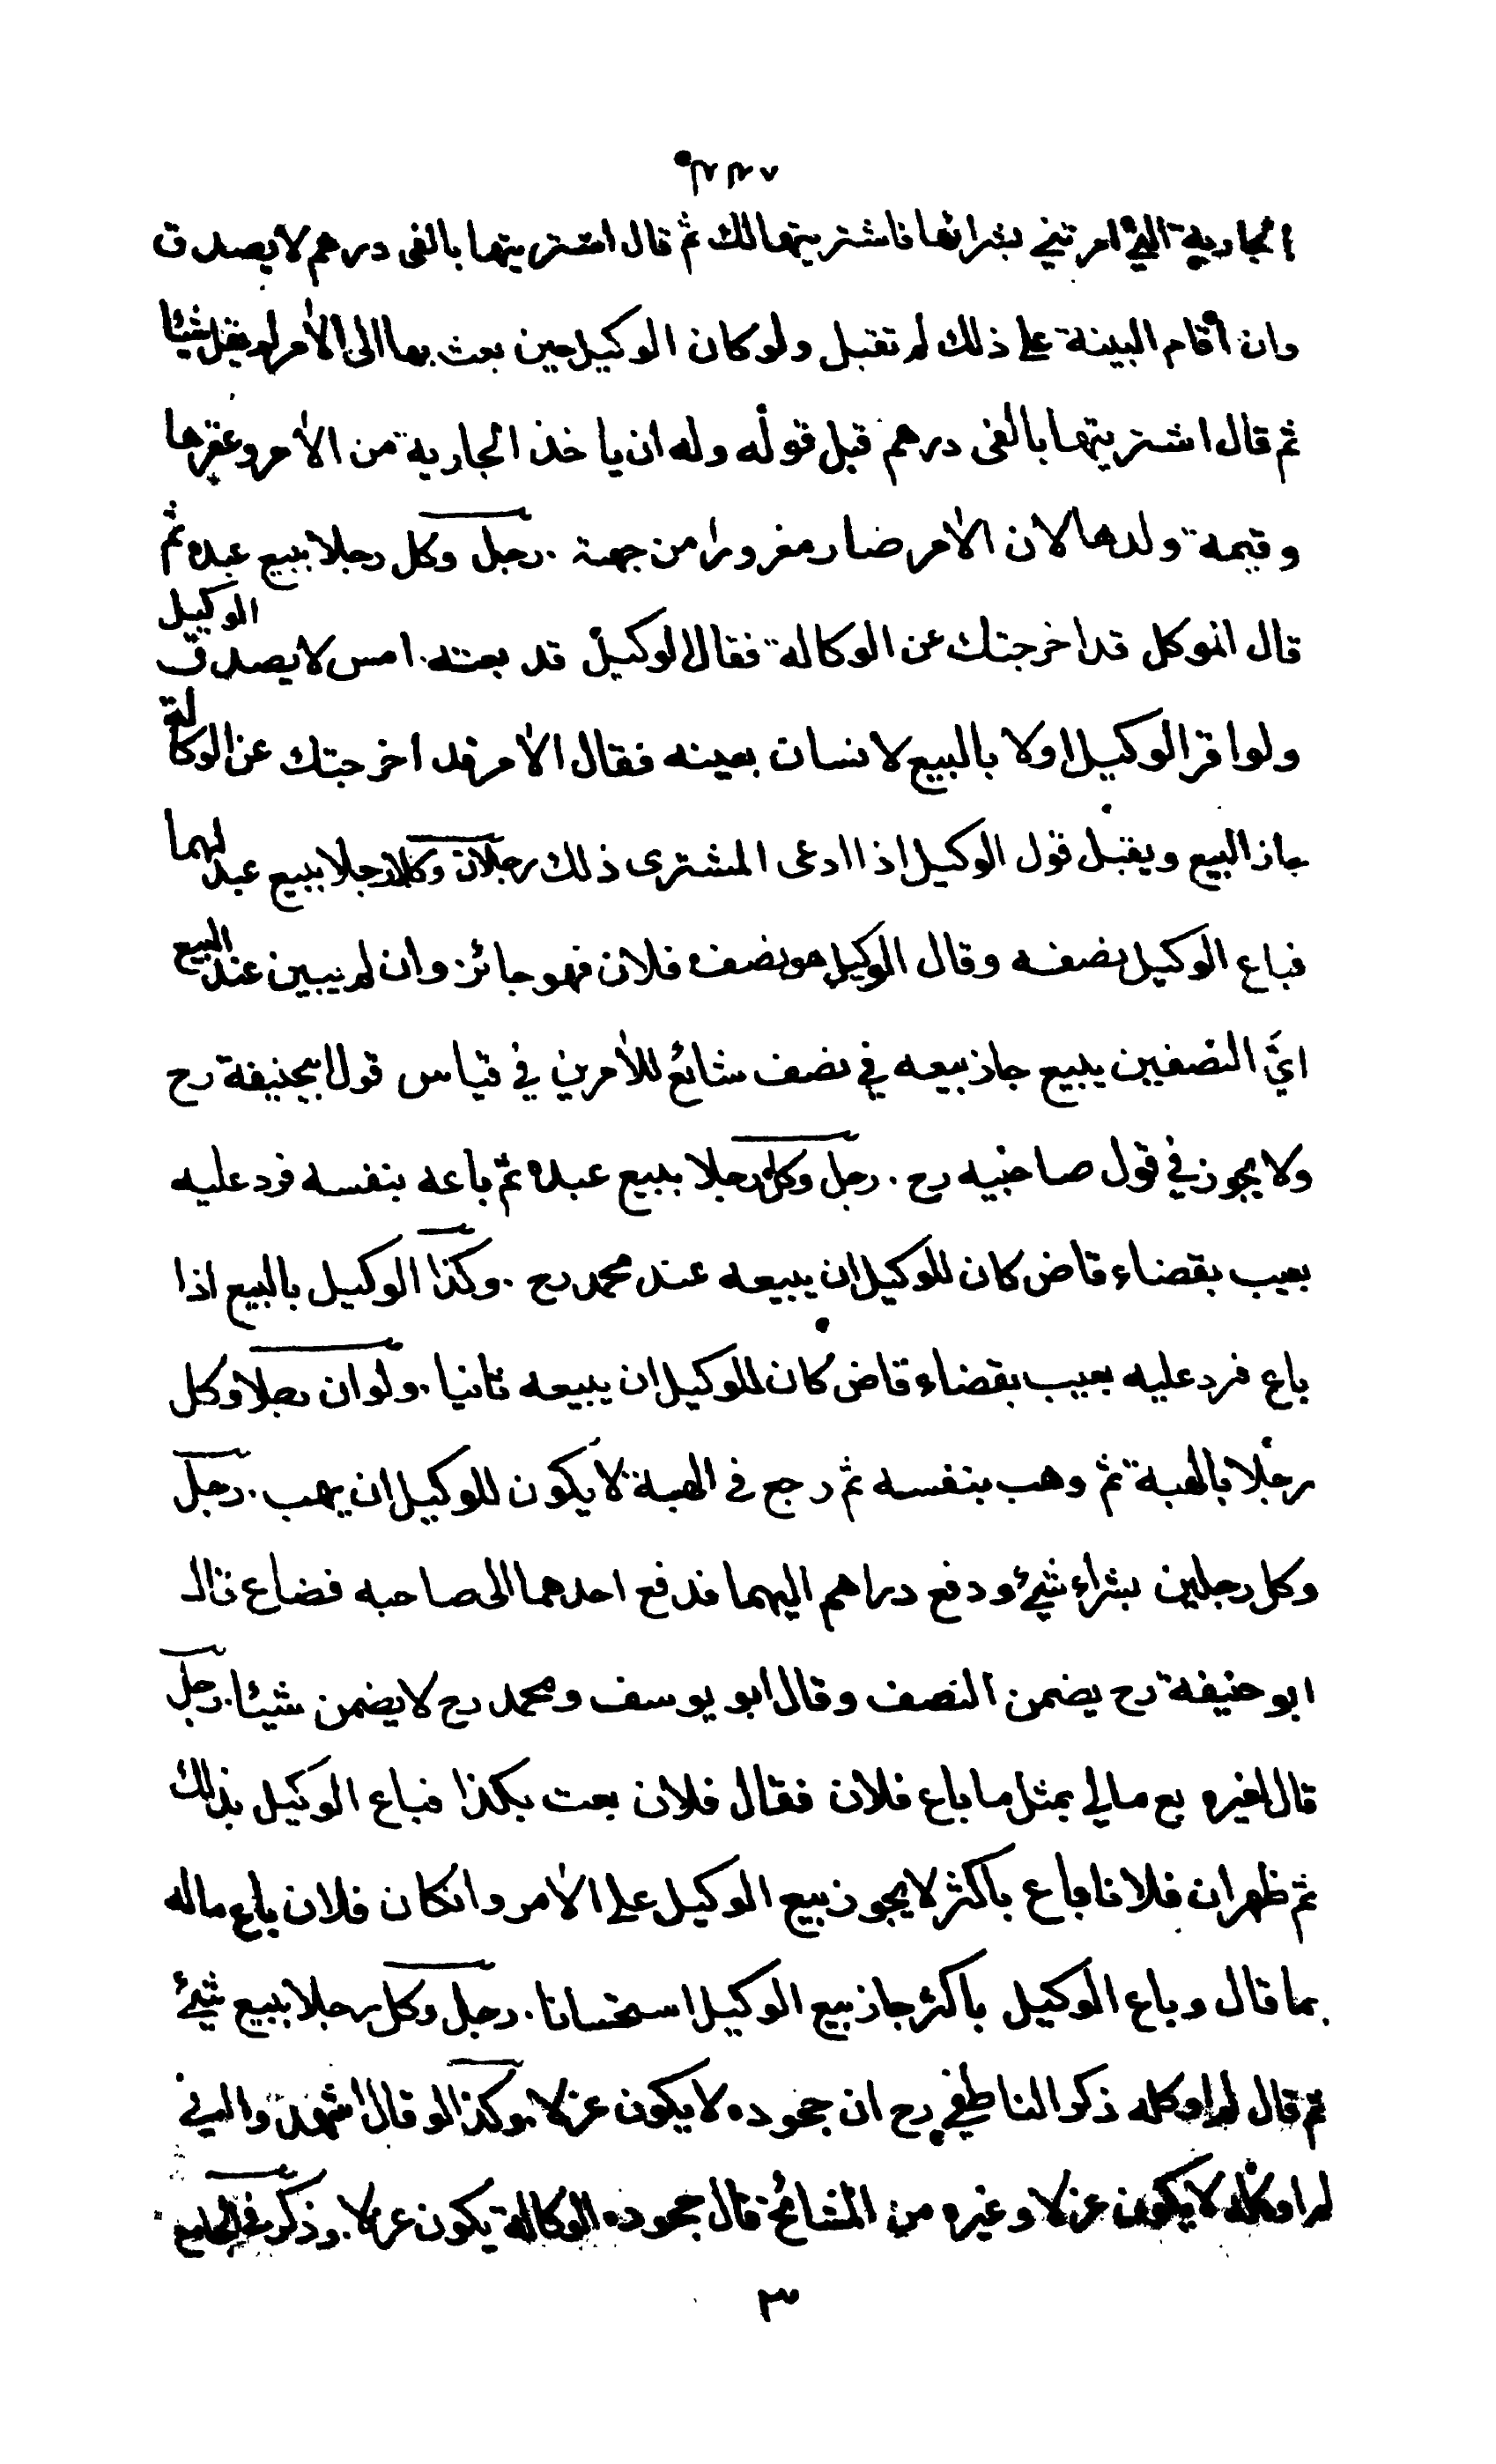 ٢٢٧
الجارية التي امرتني بشرائها فاشتريتها لك ثم قال اشتريتها بالفى درهم لا يصدق
وان اقام البينة على ذلك لم تقبل ولو كان الوكيل حين بعث بها الى الاٰمر لم يقل شيئا
ثم قال اشتريتها بالفى درهم قبل قوله وله ان ياخذ الجارية من الاٰمر وعقرها
وقيمة ولدها لان الاٰمر صار مغرورا من جهته . رجل وكل رجلا ببيع عبده ثم
قال الموكل قد اخرجتك عن الوكالة فقال الوكيل قد بعته امس لا يصدق الوكيل
ولو اقر الوكيل اولا بالبيع لانسان بعينه فقال الاٰمر قد اخرجتك عن الوكالة
جاز البيع ويقبل قول الوكيل اذا ادعى المشترى ذلك رجلان وكلا رجلا ببيع عبد لهما
فباع الوكيل نصفه وقال الوكيل هو نصف فلان فهو جائز وان لم يبين عند البيع
ايّ النصفين يبيع جاز بيعه في نصف شائع للاٰمرين في قياس قول ابيحنيفة رح
ولا يجوز في قول صاحبيه رح . رجل وكل رجلا ببيع عبده ثم باعه بنفسه فرد عليه
بعيب بقضاء قاض كان للوكيل ان يبيعه عند محمد رح . وكذا الوكيل بالبيع اذا
باع فرد عليه بعيب بقضاء قاض كان للوكيل ان يبيعه ثانيا . ولو ان رجلا وكل
رجلا بالهبة ثم وهب بنفسه ثم رجع في الهبة لا يكون للوكيل ان يهب . رجل
وكل رجلين بشراء شيئ ودفع دراهم اليهما فدفع احدهما الى صاحبه فضاع قال
ابو حنيفة رح يضمن النصف وقال ابو يوسف ومحمد رح لا يضمن شيئا . رجل
قال لغيره بع مالي بمثل ما باع فلان فقال فلان بعت بكذا فباع الوكيل بذلك
ثم ظهر ان فلانا باع باكثر لا يجوز بيع الوكيل على الاٰمر وانكان فلان باع ماله
بما قال وباع الوكيل باكثر جاز بيع الوكيل استحسانا . رجل وكل رجلا ببيع شيئ
ثم قال لم اوكله ذكر الناطفي رح ان جحوده لا يكون عزلا . وكذا لو قال اشهدوا اني
لم اوكله لا يكون عزلا وغيره من المشائخ قال جحوده الوكالة يكون عزلا . وذكر في الجامع
٣